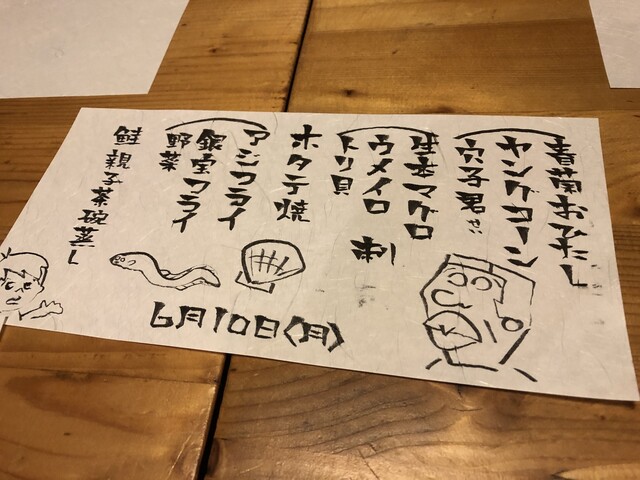 春菊おひたし
ヤングコーン
穴子君
生本マグロ
ウメイロ
トリ貝
刺
ホタテ焼
アジフライ
銀宝フライ
野菜
鮭親子茶碗蒸し
6月10日(月)